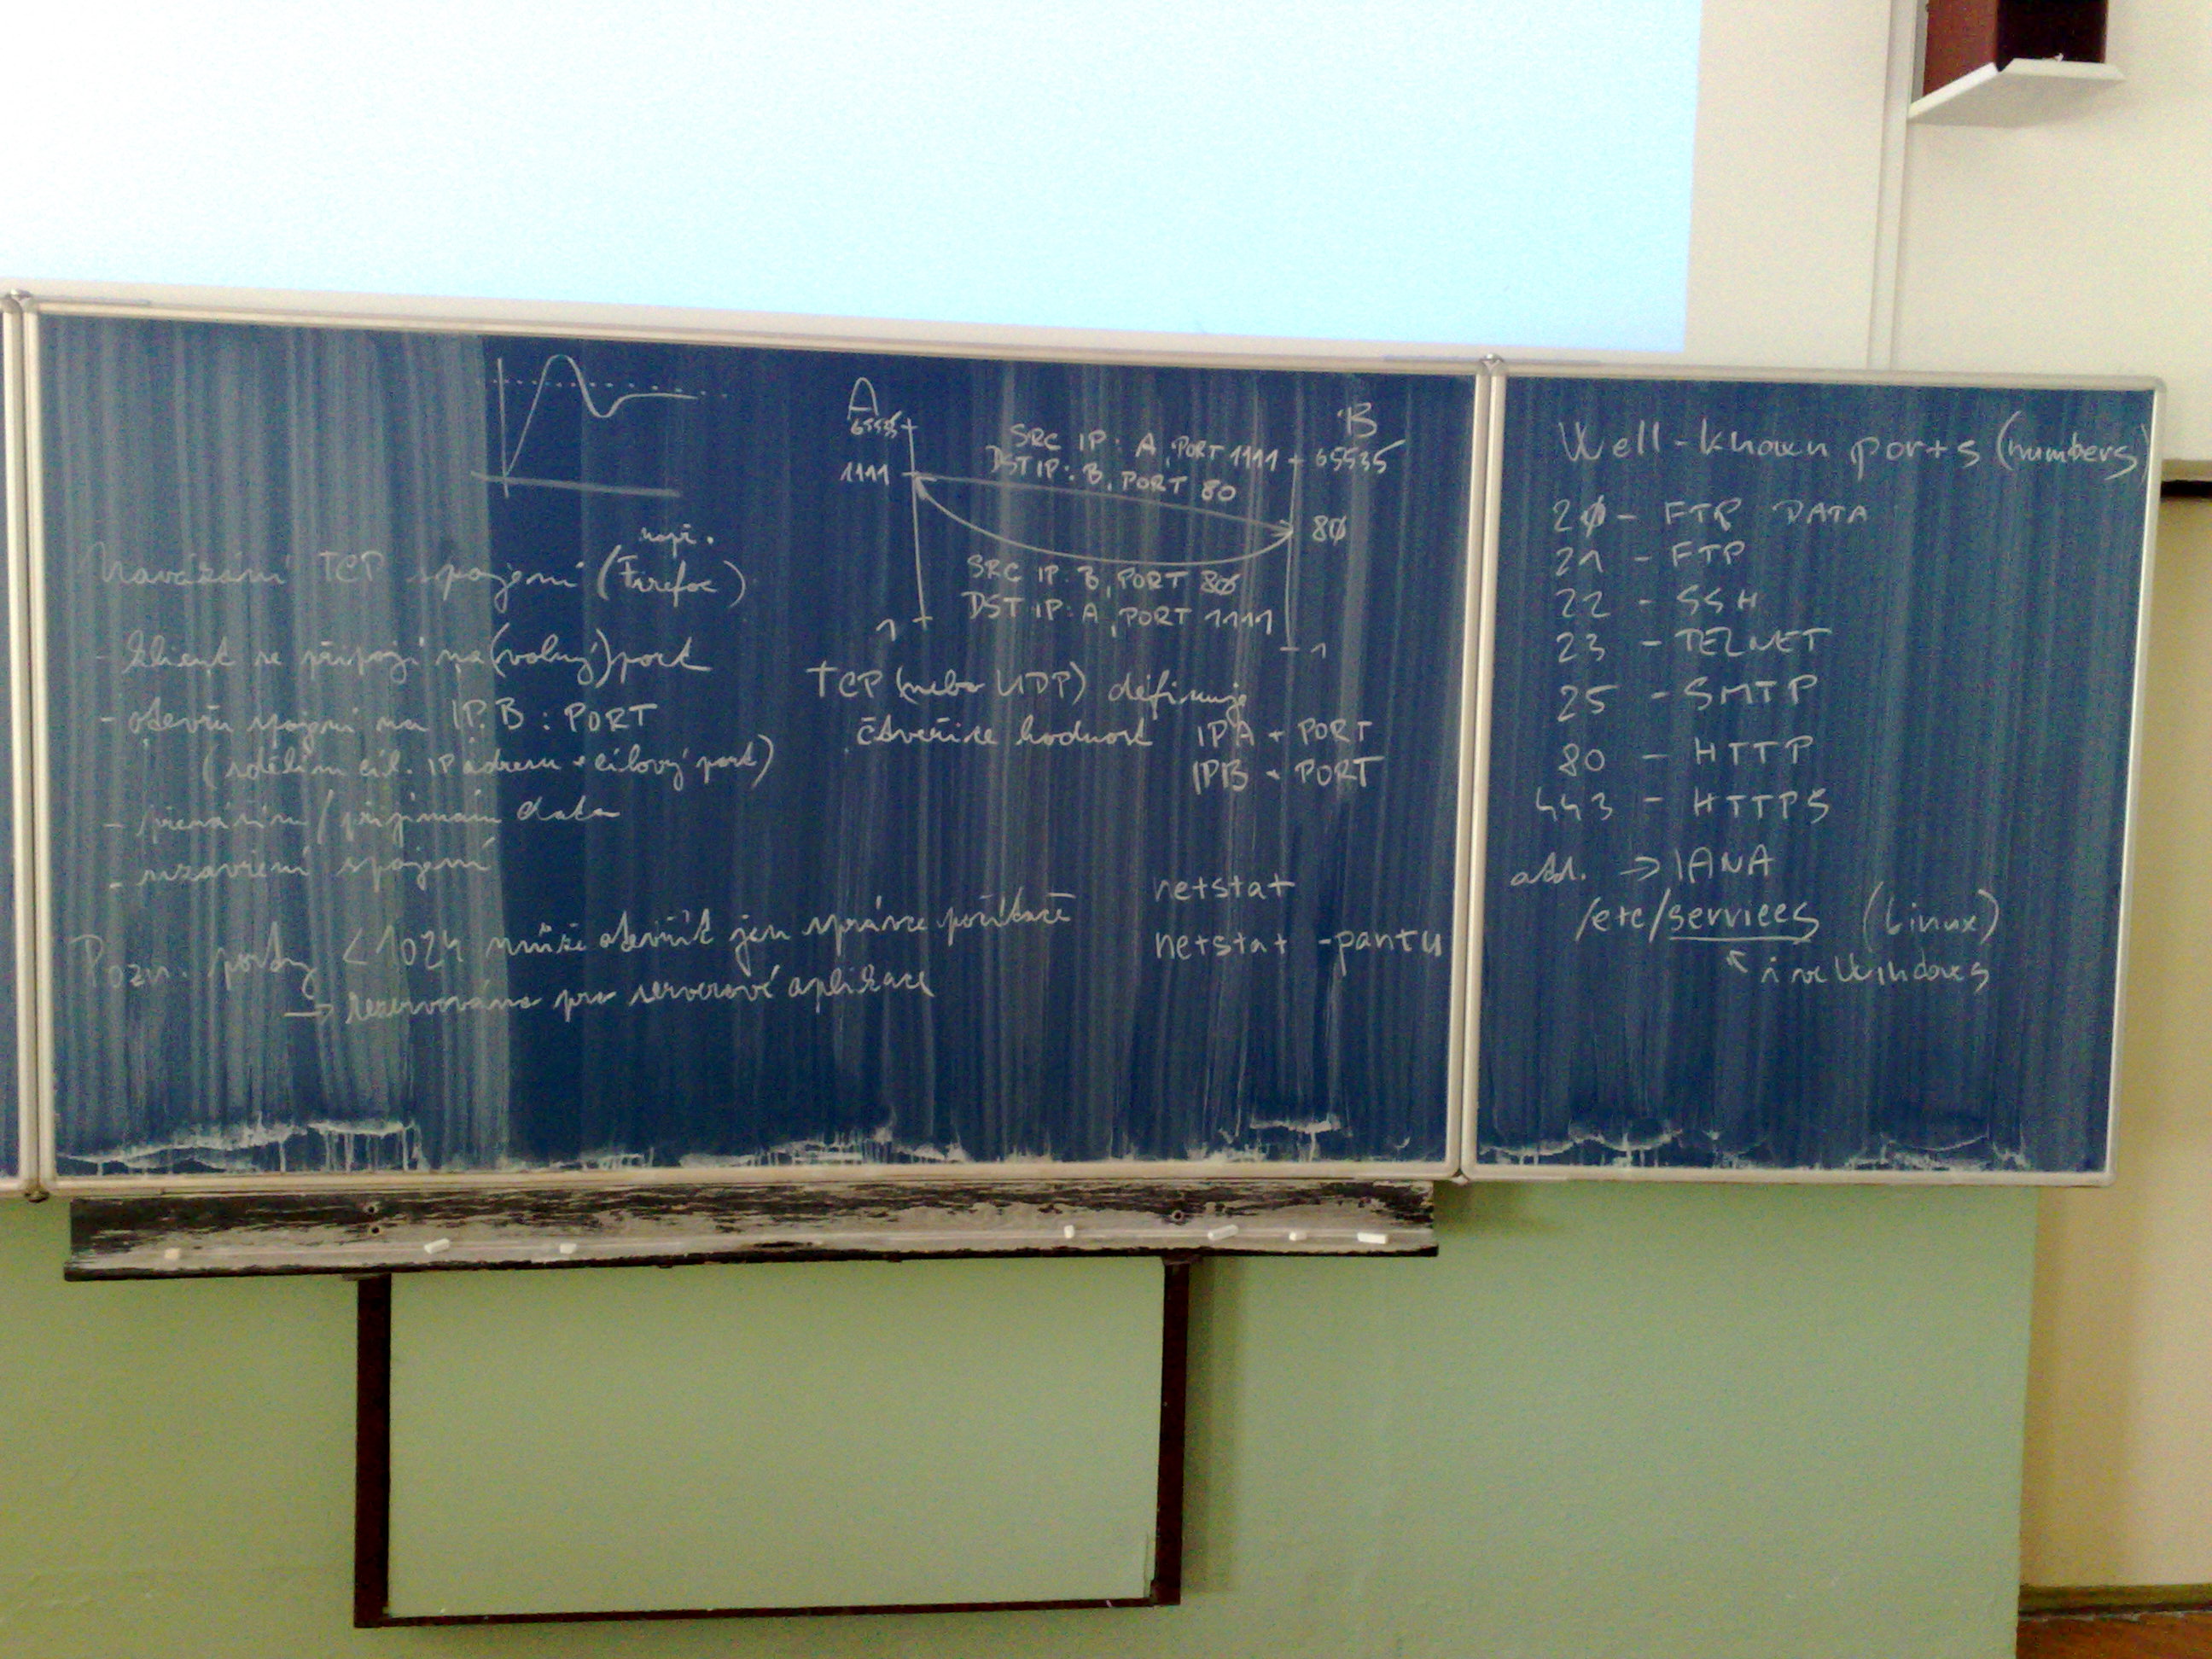 např.
Navázání TCP spojení (Firefox)
- klient se připojí na (volný) port
- otevřu spojení na IP.B : PORT
(sdělím cíl. IP adresu + cílový port)
- přenáším / přijímám data
- uzavření spojení
Pozn. porty < 1024 může otevřít jen správce počítače
→ rezervováno pro serverové aplikace
A
65535
1111
1
B
65535
80
1
SRC IP: A, PORT 1111
DST IP: B, PORT 80
SRC IP: B, PORT 80
DST IP: A, PORT 1111
TCP (nebo UDP) definuje
čtveřice hodnot IPA + PORT
IPB + PORT
netstat
netstat -pantu
Well-known ports (numbers)
20 - FTP DATA
21 - FTP
22 - SSH
23 - TELNET
25 - SMTP
80 - HTTP
443 - HTTPS
atd. → IANA
/etc/services (Linux)
i ve Windows